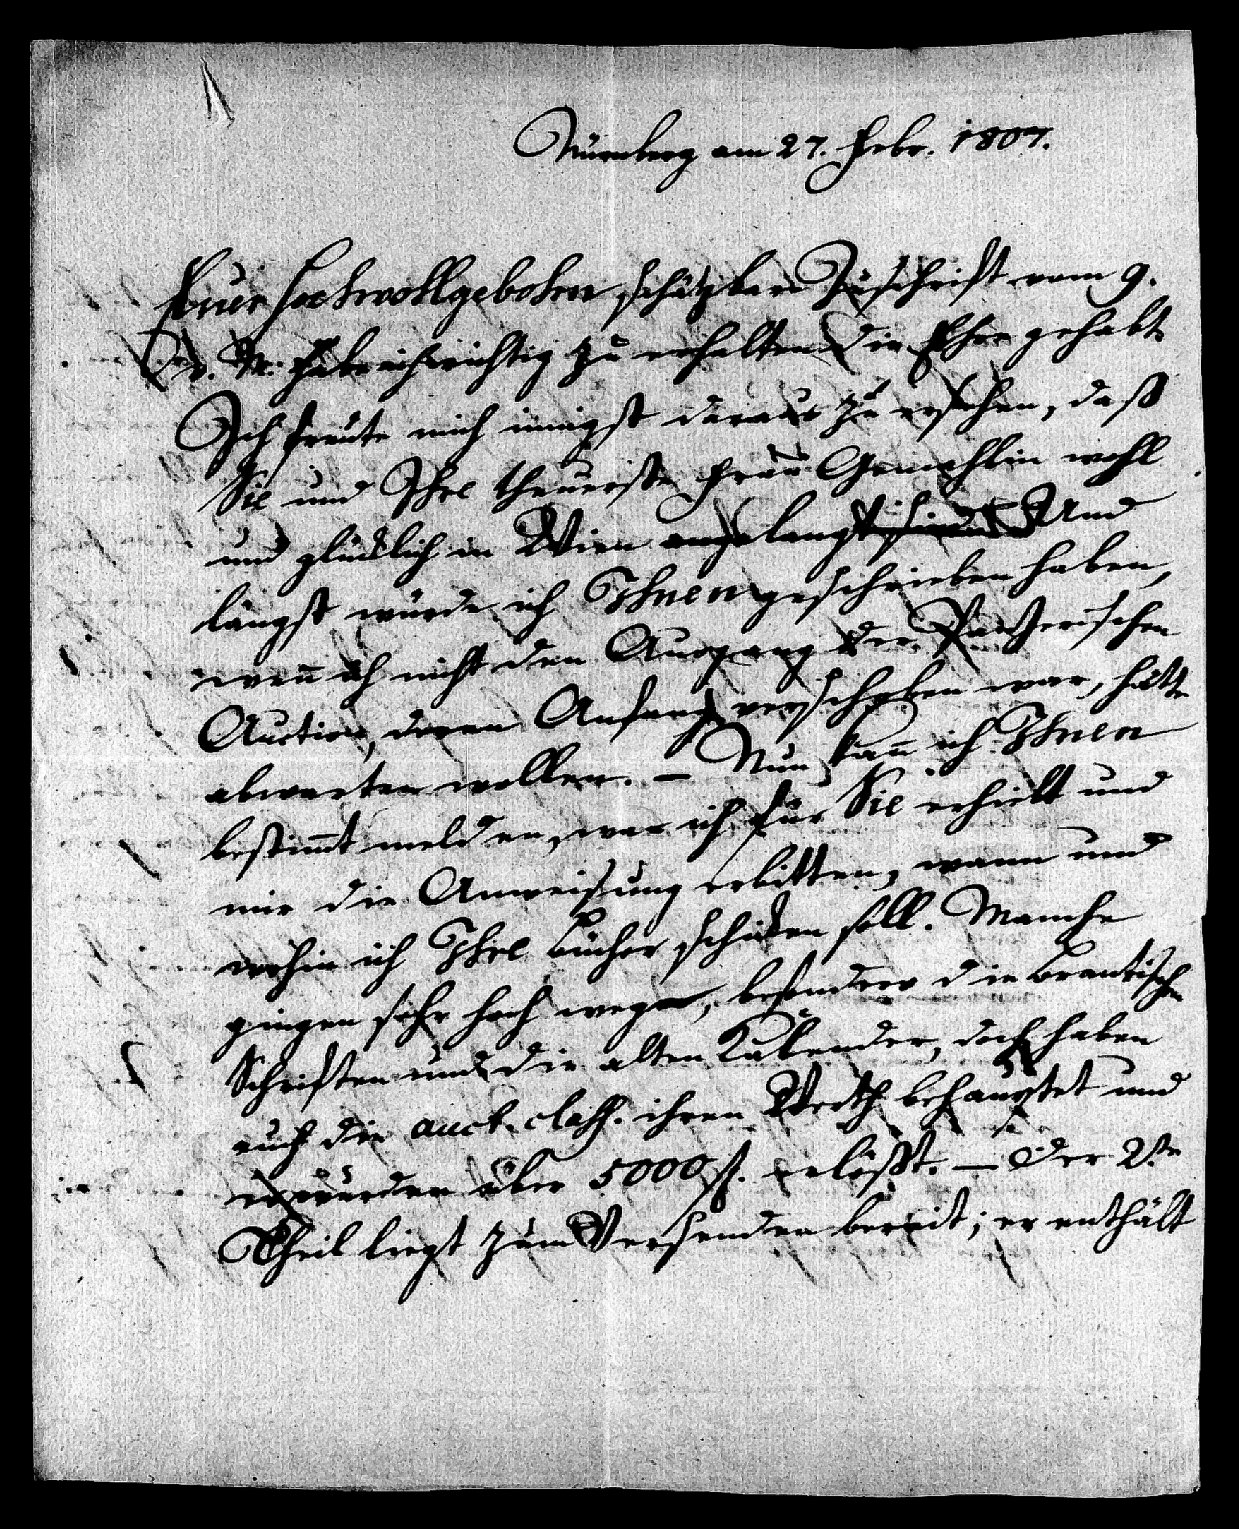 Nürnberg am 27. Febr. 1807.
Euer Hochwohlgebohren schätzbare Zuschrift vom 9.
d. M. habe ich richtig zu erhalten die Ehre gehabt
Ich freute mich innigst daraus zu ersehen, daß
Sie und Ihre theuerste Frau Gemahlin wohl
und glücklich in Wien angelangt sind. Und
längst würde ich Ihnen geschrieben haben,
weñ ich nicht den Ausgang der Panzerischen
Auction, deren Anfang verschoben war, hätte
abwarten wollen. – Nun kañ ich Ihnen
bestim̃t melden, was ich für Sie erhielt und
mir die Anweisung erbitten, wann und
wohin ich Ihre Bücher schicken soll. Manche
gingen sehr hoch weg, besonders die Brantischen
Schriften und die alten Kalender, doch haben
auch die auct. class. ihren Werth behauptet und
es wurden über 5000 f. erlößt. – Der 2.te
Theil liegt zum Versenden bereit; er enthält